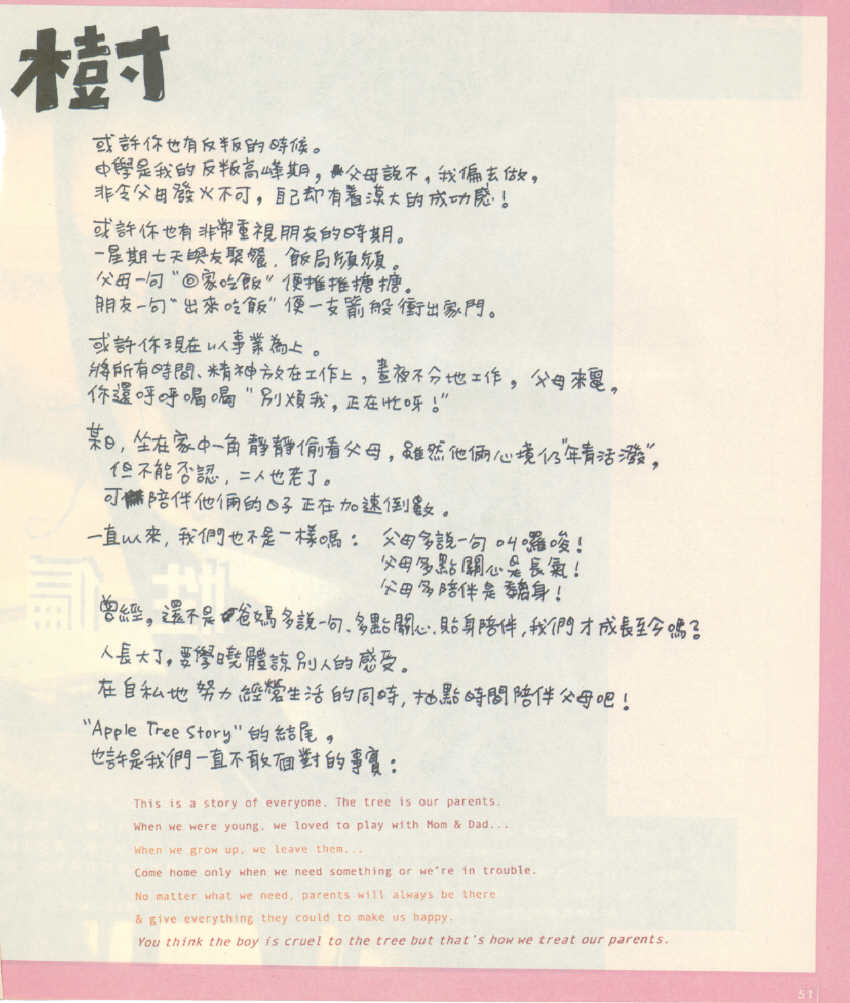 樹
或許你也有反叛的時候。
中學是我的反叛高峰期，父母說不，我偏去做，
非令父母發火不可，自己却有着漠大的成功感！
或許你也有非常重視朋友的時期。
一星期七天與友聚餐．飯局頻頻。
父母一句“回家吃飯”便推推搪搪。
朋友一句“出來吃飯”便一支箭般衝出家門。
或許你現在以事業為上。
將所有時間、精神放在工作上，晝夜不分地工作，父母來電，
你還呼呼喝喝“別煩我，正在忙呀！”
某日，坐在家中一角靜靜偷看父母，雖然他倆心境仍“年青活潑”，
但不能否認，二人也老了。
可陪伴他倆的日子正在加速倒數。
一直以來，我們也不是一樣嗎： 父母多說一句叫囉唆！
父母多點關心是長氣！
父母多陪伴是黐身！
曾經，還不是爸媽多說一句、多點關心、貼身陪伴，我們才成長至今嗎？
人長大了，要學曉體諒別人的感受。
在自私地努力經營生活的同時，抽點時間陪伴父母吧！
“Apple Tree Story”的結尾，
也許是我們一直不敢面對的事實：
This is a story of everyone. The tree is our parents.
When we were young, we loved to play with Mom & Dad...
When we grow up, we leave them...
Come home only when we need something or we're in trouble.
No matter what we need, parents will always be there
& give everything they could to make us happy.
You think the boy is cruel to the tree but that's how we treat our parents.
51